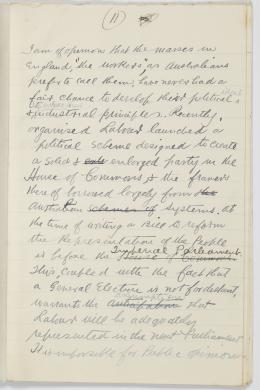 (11)
I am of opinion that the masses in
England, "the workers", as Australians
prefer to call them, have never had a
fair chance to develop their political &
industrial principles. Recently,
organised Labour launched a
political scheme designed to create
a solid & enlarged party in the
House of Commons & the framers
thereof borrowed largely from the
Australian schemes & systems. At
the time of writing a Bill to reform
the Representation of the People
is before the Imperial Parliament.
House of Commons.
This, coupled with the fact that
a General Election is not far distant,
warrants the
assumption that
Labour will be adequately
represented in the next Parliament
It is impossible for Public opinion